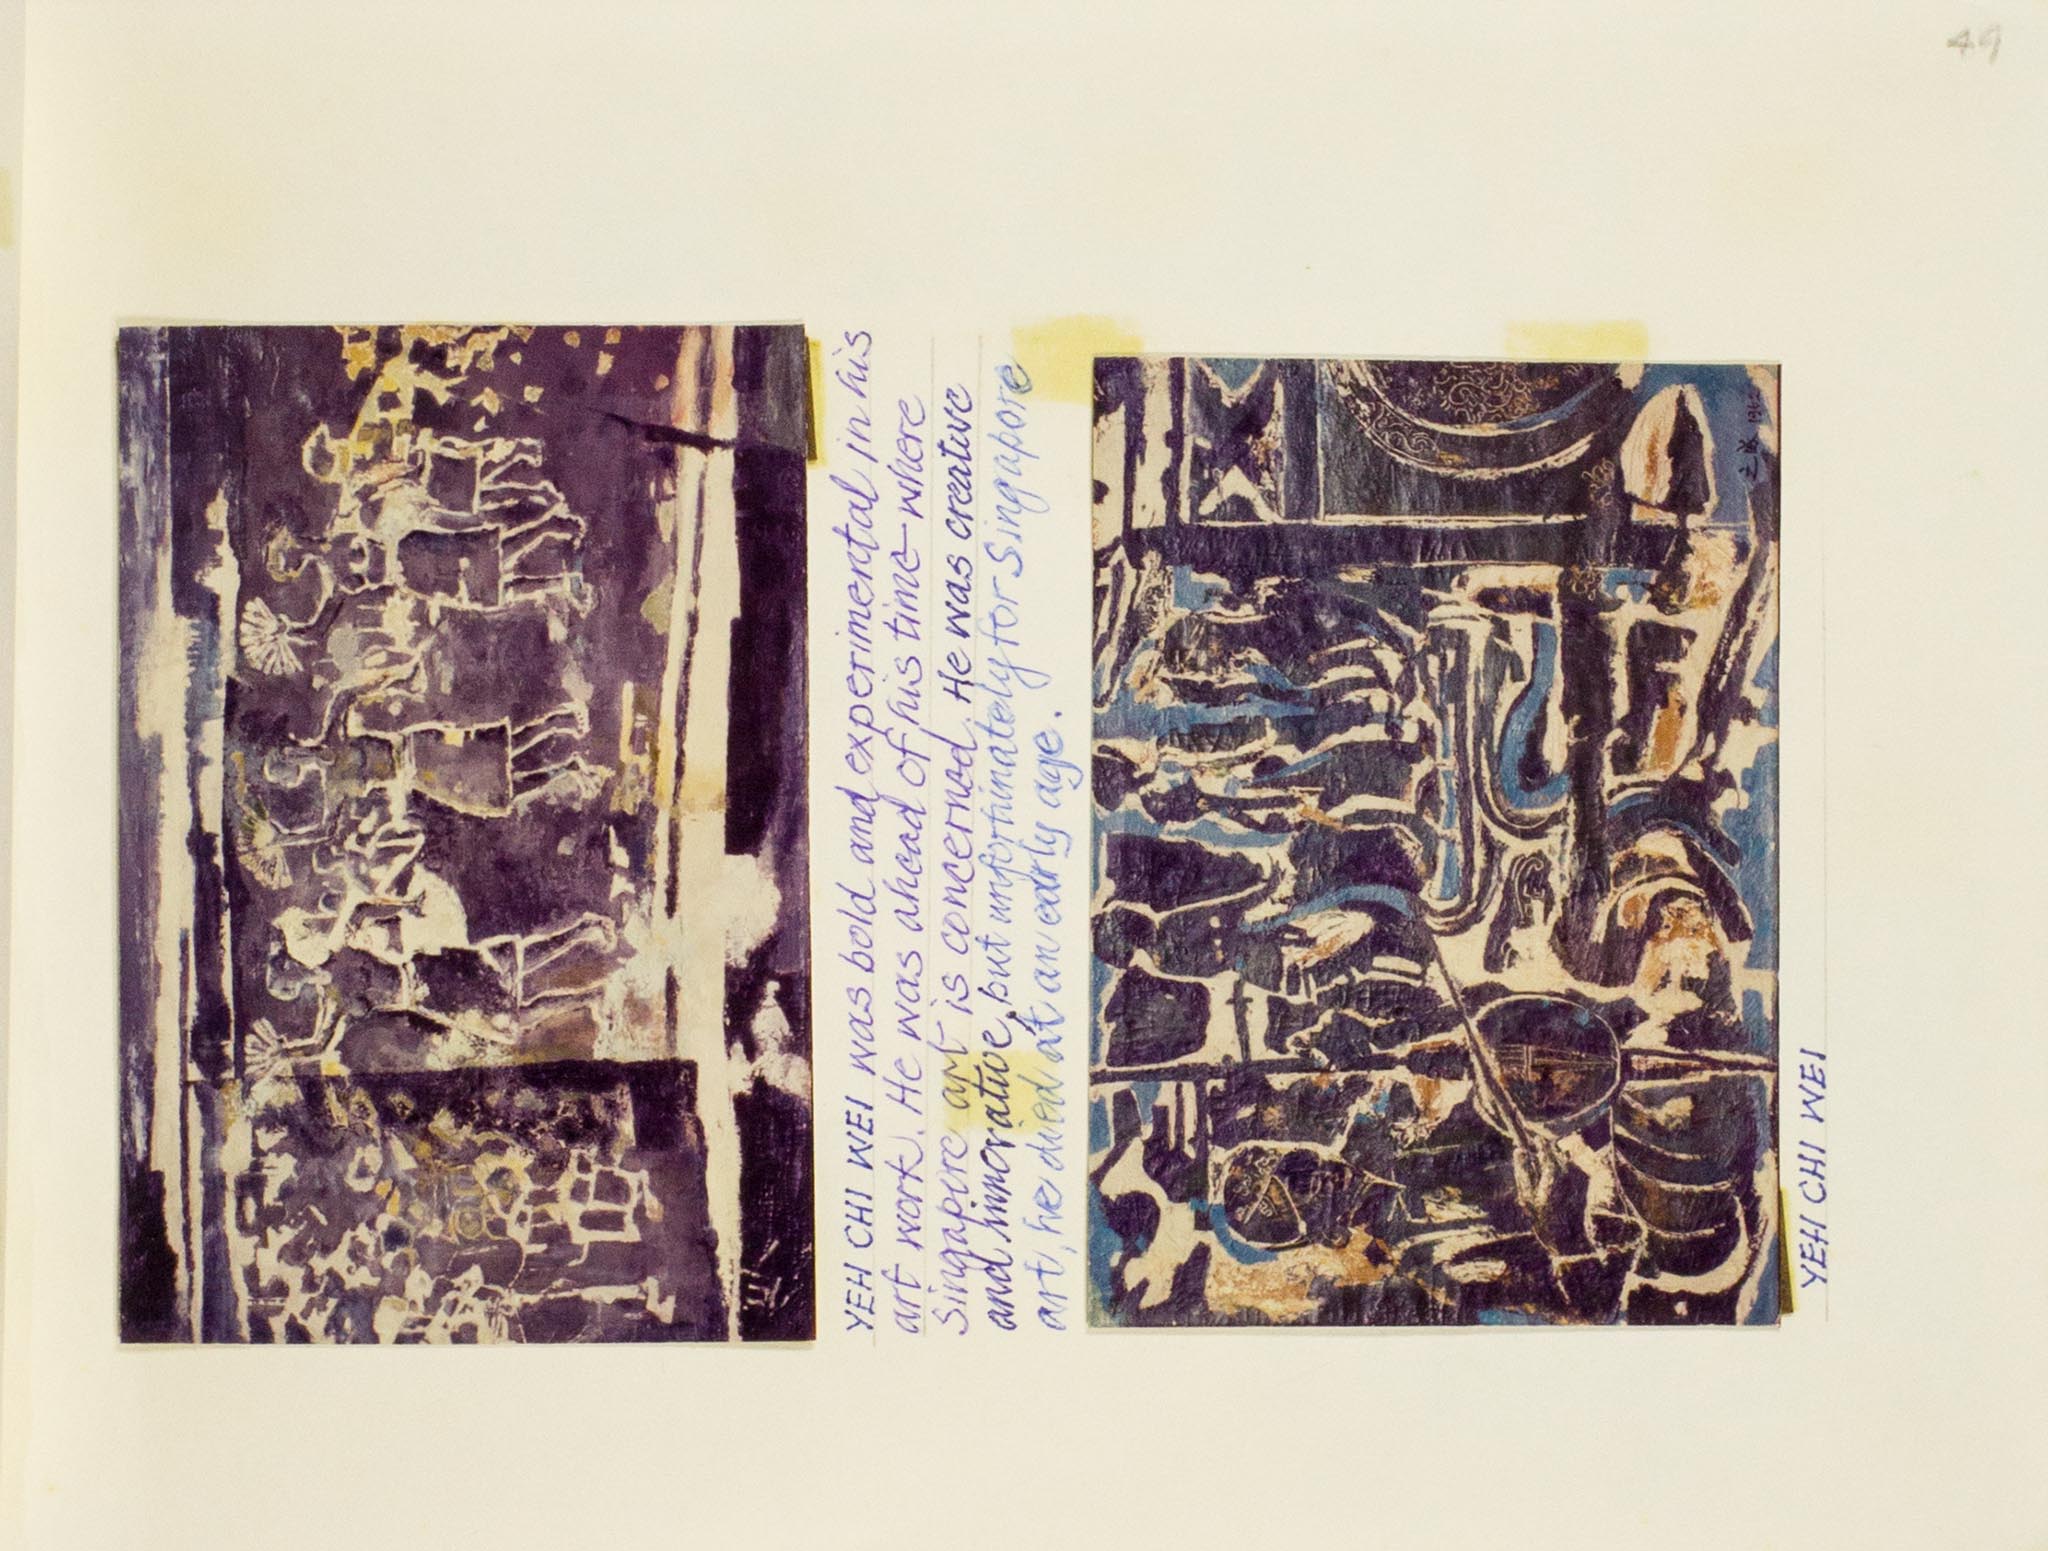 49
YEH CHI WEI was bold and experimental in his
art work. He was ahead of his time where
Singapore art is concerned. He was creative
and innovative, but unfortunately for Singapore
art, he died at an early age.
之威 1962
YEH CHI WEI